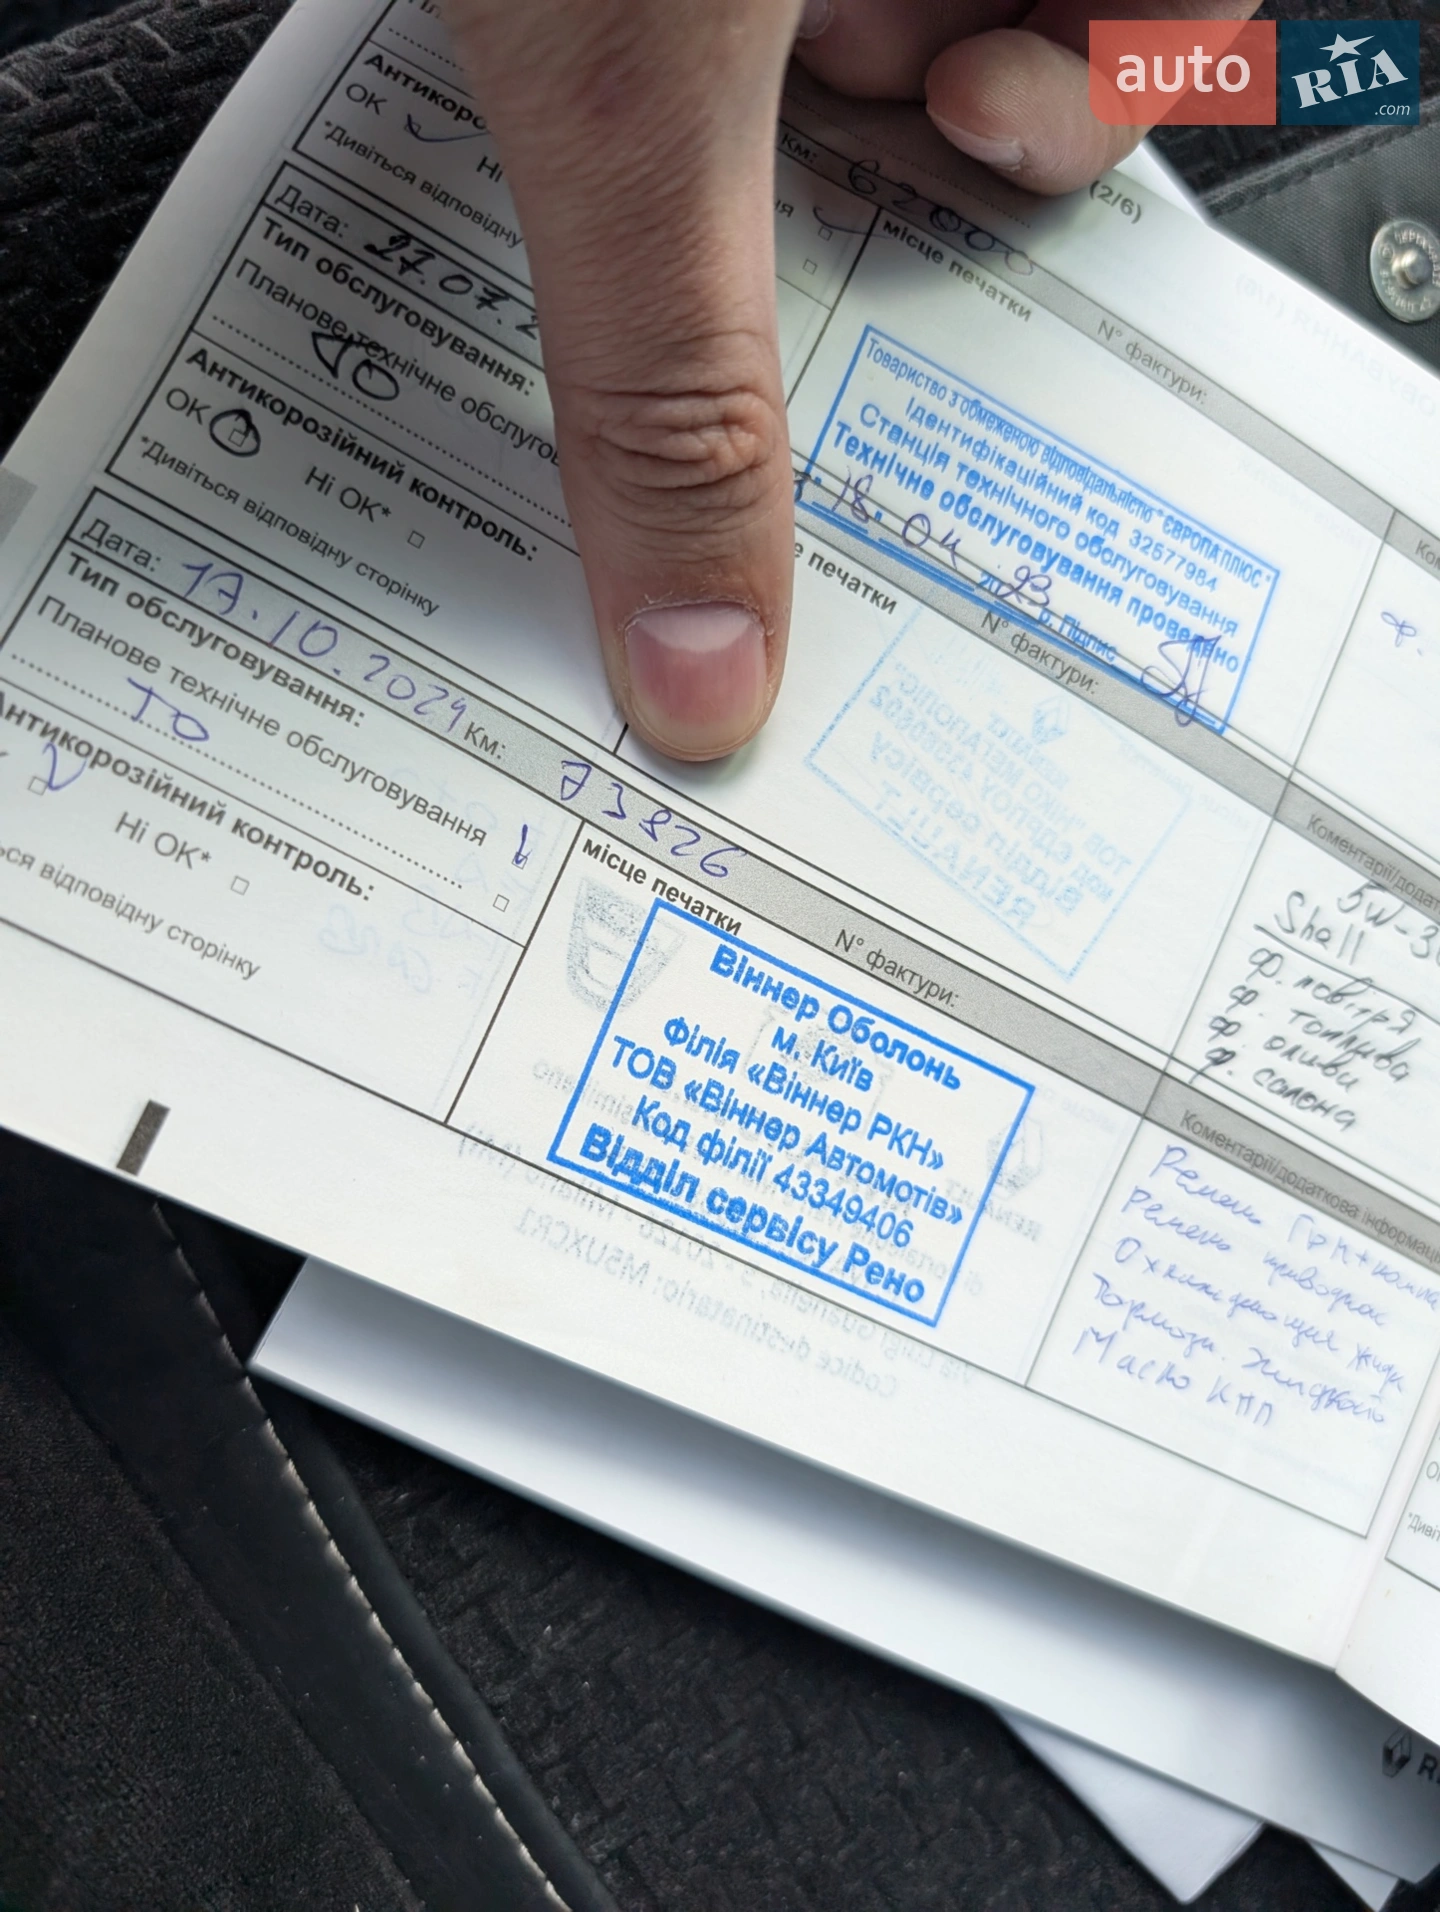 auto RIA .com
(2/6)
Км: 62000
Антикоро
ОК
Ні
*Дивіться відповідну
місце печатки
N° фактури:
Товариство з обмеженою відповідальністю "ЄВРОПАПЛЮС"
Ідентифікаційний код 32577984
Станція технічного обслуговування
Технічне обслуговування проведено
18. 04 2023 р. Підпис
Дата: 27.07.2
Тип обслуговування:
Планове технічне обслугов
ТО
Антикорозійний контроль:
ОК
Ні ОК*
*Дивіться відповідну сторінку
е печатки
N° фактури:
Коментарі/додат
5W-30
Shell
ф. повітря
ф. топлива
ф. оливи
ф. салона
Дата: 17.10.2024 Км: 73826
Тип обслуговування:
Планове технічне обслуговування
ТО
Антикорозійний контроль:
Ні ОК*
ься відповідну сторінку
місце печатки
N° фактури:
Віннер Оболонь
м. Київ
Філія «Віннер РКН»
ТОВ «Віннер Автомотів»
Код філії 43349406
Відділ сервісу Рено
Коментарі/додаткова інформаці
Ремень ГРМ+помпа
Ремень приводной
Охлаждающая жидк
Тормозн. жидкость
Масло КПП